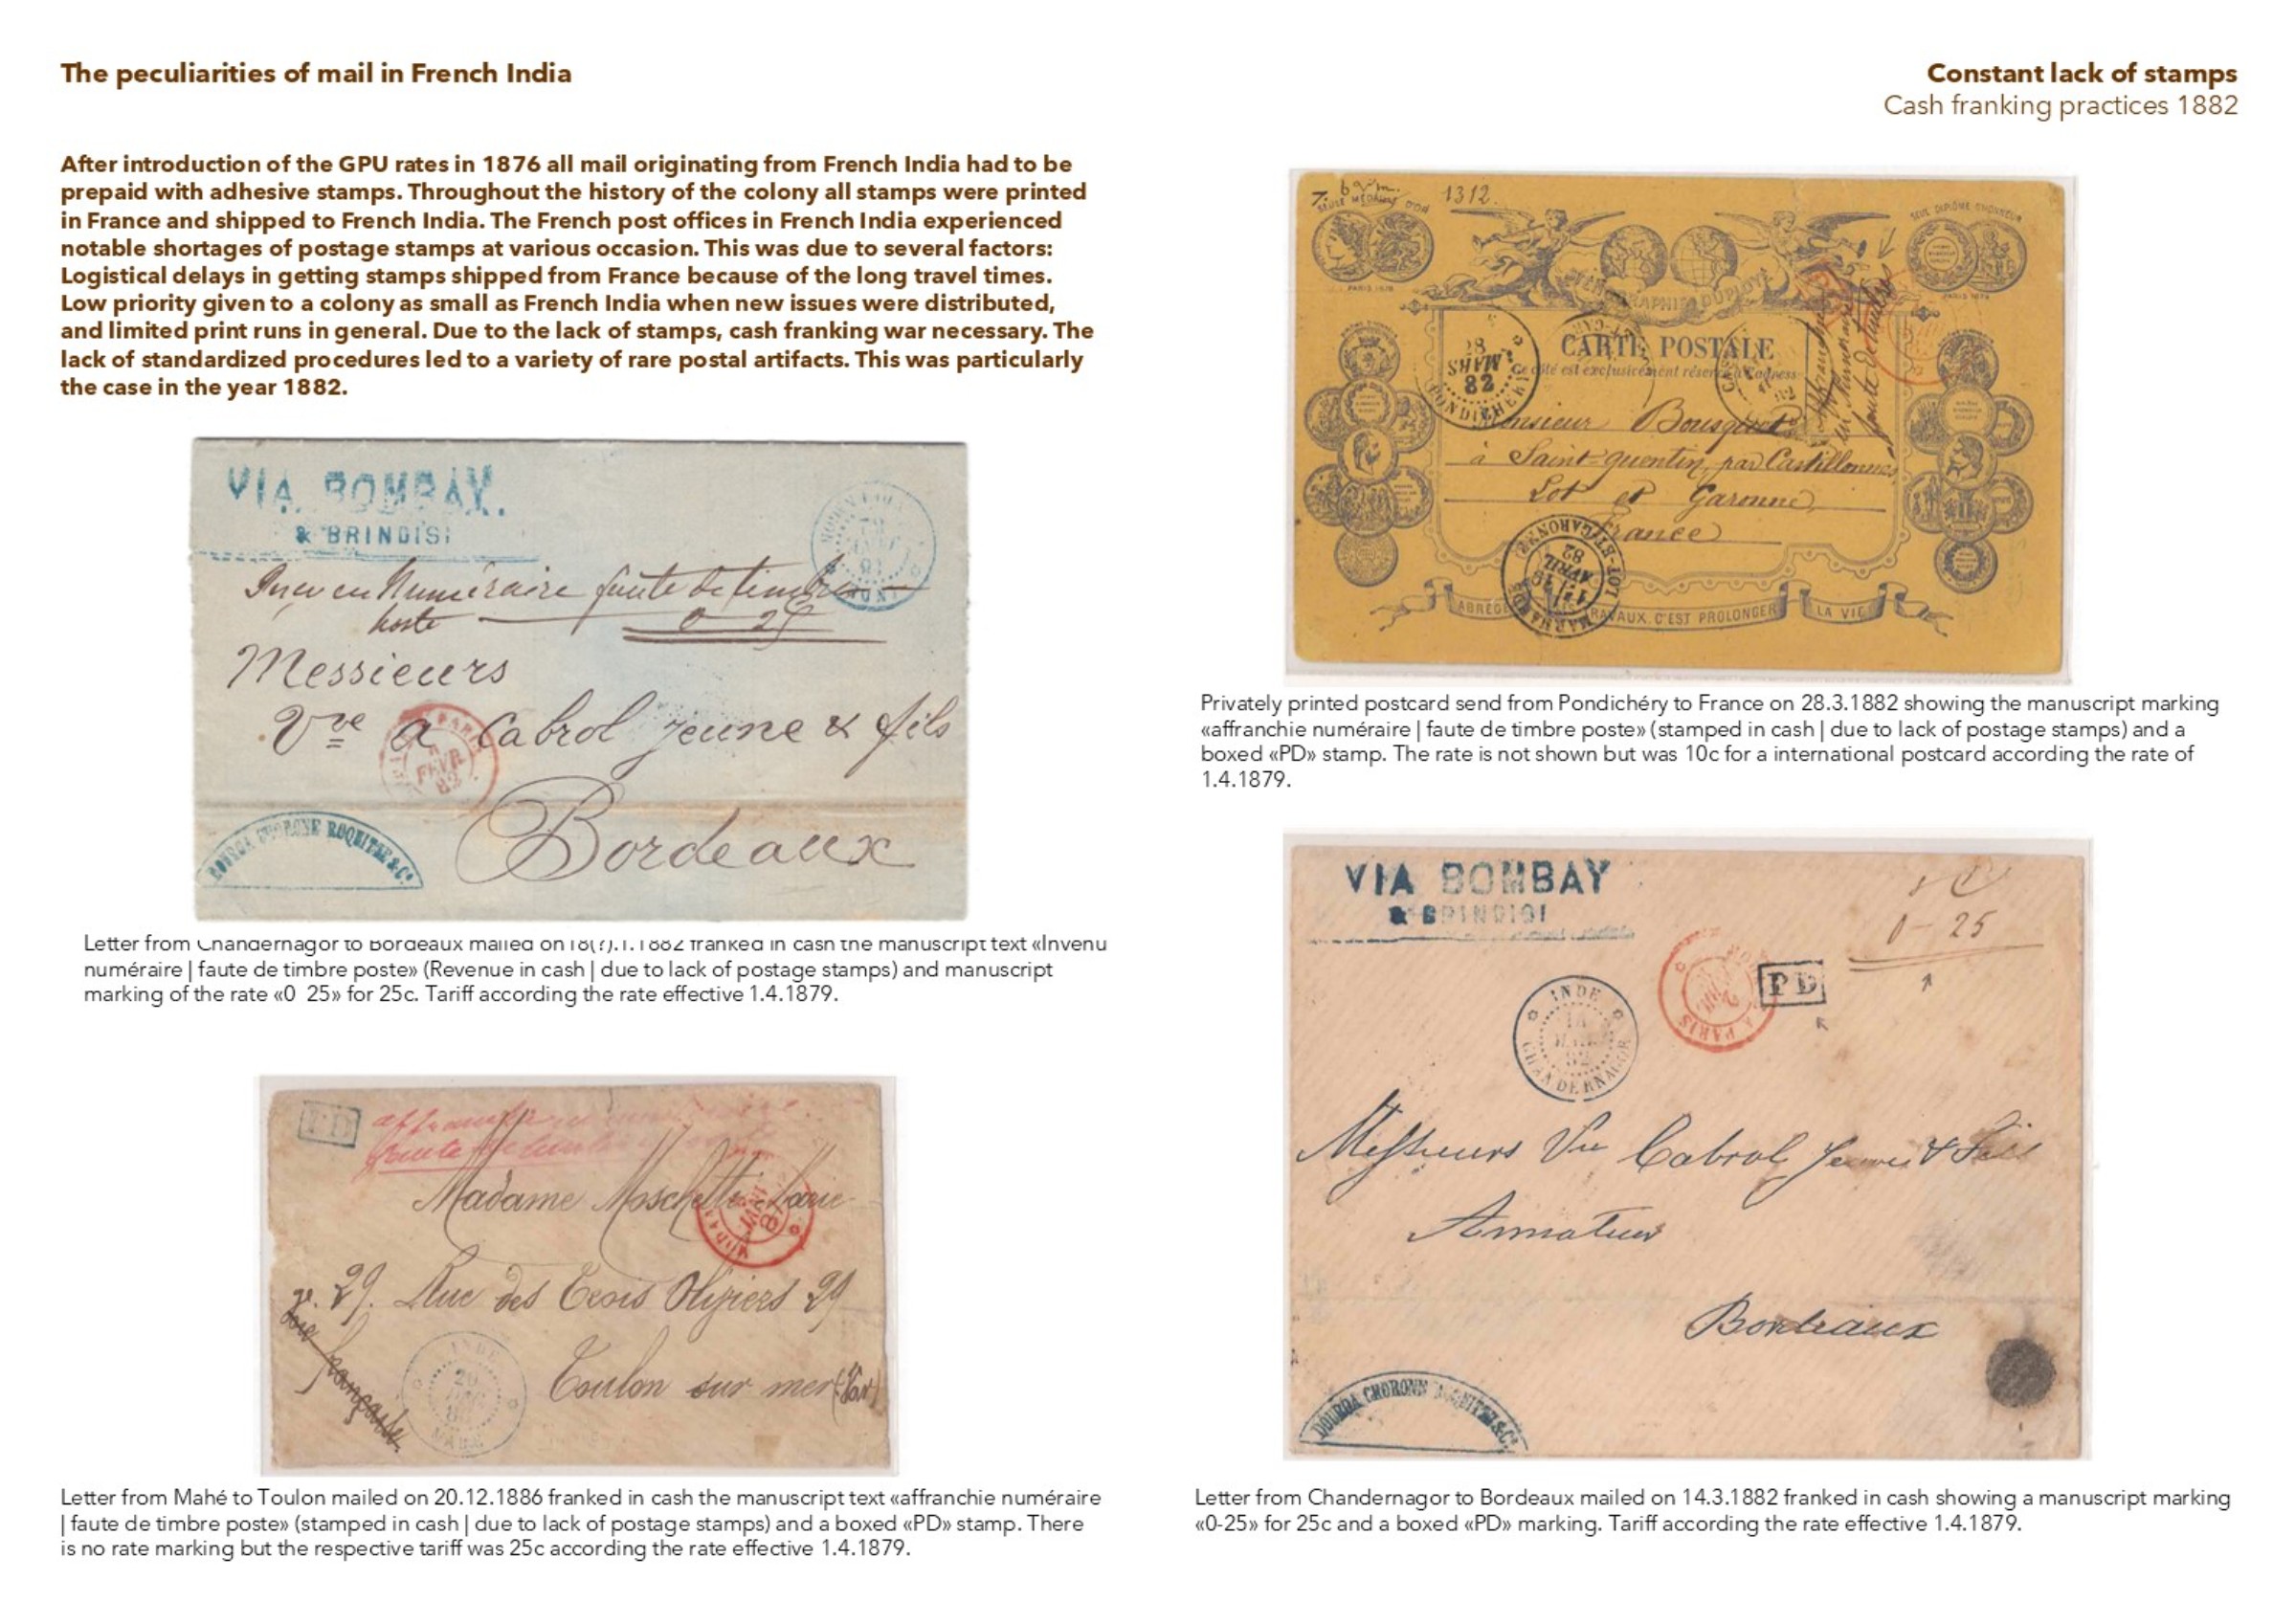 The peculiarities of mail in French India
Constant lack of stamps
Cash franking practices 1882
After introduction of the GPU rates in 1876 all mail originating from French India had to be
prepaid with adhesive stamps. Throughout the history of the colony all stamps were printed
in France and shipped to French India. The French post offices in French India experienced
notable shortages of postage stamps at various occasion. This was due to several factors:
Logistical delays in getting stamps shipped from France because of the long travel times.
Low priority given to a colony as small as French India when new issues were distributed,
and limited print runs in general. Due to the lack of stamps, cash franking war necessary. The
lack of standardized procedures led to a variety of rare postal artifacts. This was particularly
the case in the year 1882.
VIA BOMBAY.
& BRINDISI
numéraire faute de timbre
poste 0 25
Messieurs
Vve a Cabrol jeune & fils
FEVR
82
Bordeaux
DOURGA CHORONE ROQUITTE & Cº
Letter from Chandernagor to Bordeaux mailed on 18(?).1.1882 franked in cash the manuscript text «Invenu
numéraire | faute de timbre poste» (Revenue in cash | due to lack of postage stamps) and manuscript
marking of the rate «0 25» for 25c. Tariff according the rate effective 1.4.1879.
PD
Madame
29. Rue des Trois Oliviers 29
Toulon sur mer (Var)
voie française
INDE
20
MAHE
Letter from Mahé to Toulon mailed on 20.12.1886 franked in cash the manuscript text «affranchie numéraire
| faute de timbre poste» (stamped in cash | due to lack of postage stamps) and a boxed «PD» stamp. There
is no rate marking but the respective tariff was 25c according the rate effective 1.4.1879.
1312.
PARIS 1878
28
MARS
82
PONDICHERY
CARTE POSTALE
Ce côté est exclusivement réservé à l'adresse
faute de timbre
Monsieur Bousquet
à Saint-quentin, par Castillonnès
Lot et Garonne
France
AVRIL
82
LOT-ET-GARONNE
ABRÉGER TRAVAUX. C'EST PROLONGER LA VIE
Privately printed postcard send from Pondichéry to France on 28.3.1882 showing the manuscript marking
«affranchie numéraire | faute de timbre poste» (stamped in cash | due to lack of postage stamps) and a
boxed «PD» stamp. The rate is not shown but was 10c for a international postcard according the rate of
1.4.1879.
VIA BOMBAY
& BRINDISI
0-25
PD
A PARIS
INDE
CHANDERNAGOR
Messieurs Vve Cabrol Jeune & Fils
Armateurs
Bordeaux
DOURGA CHORONE ROQUITTE & Cº
Letter from Chandernagor to Bordeaux mailed on 14.3.1882 franked in cash showing a manuscript marking
«0-25» for 25c and a boxed «PD» marking. Tariff according the rate effective 1.4.1879.